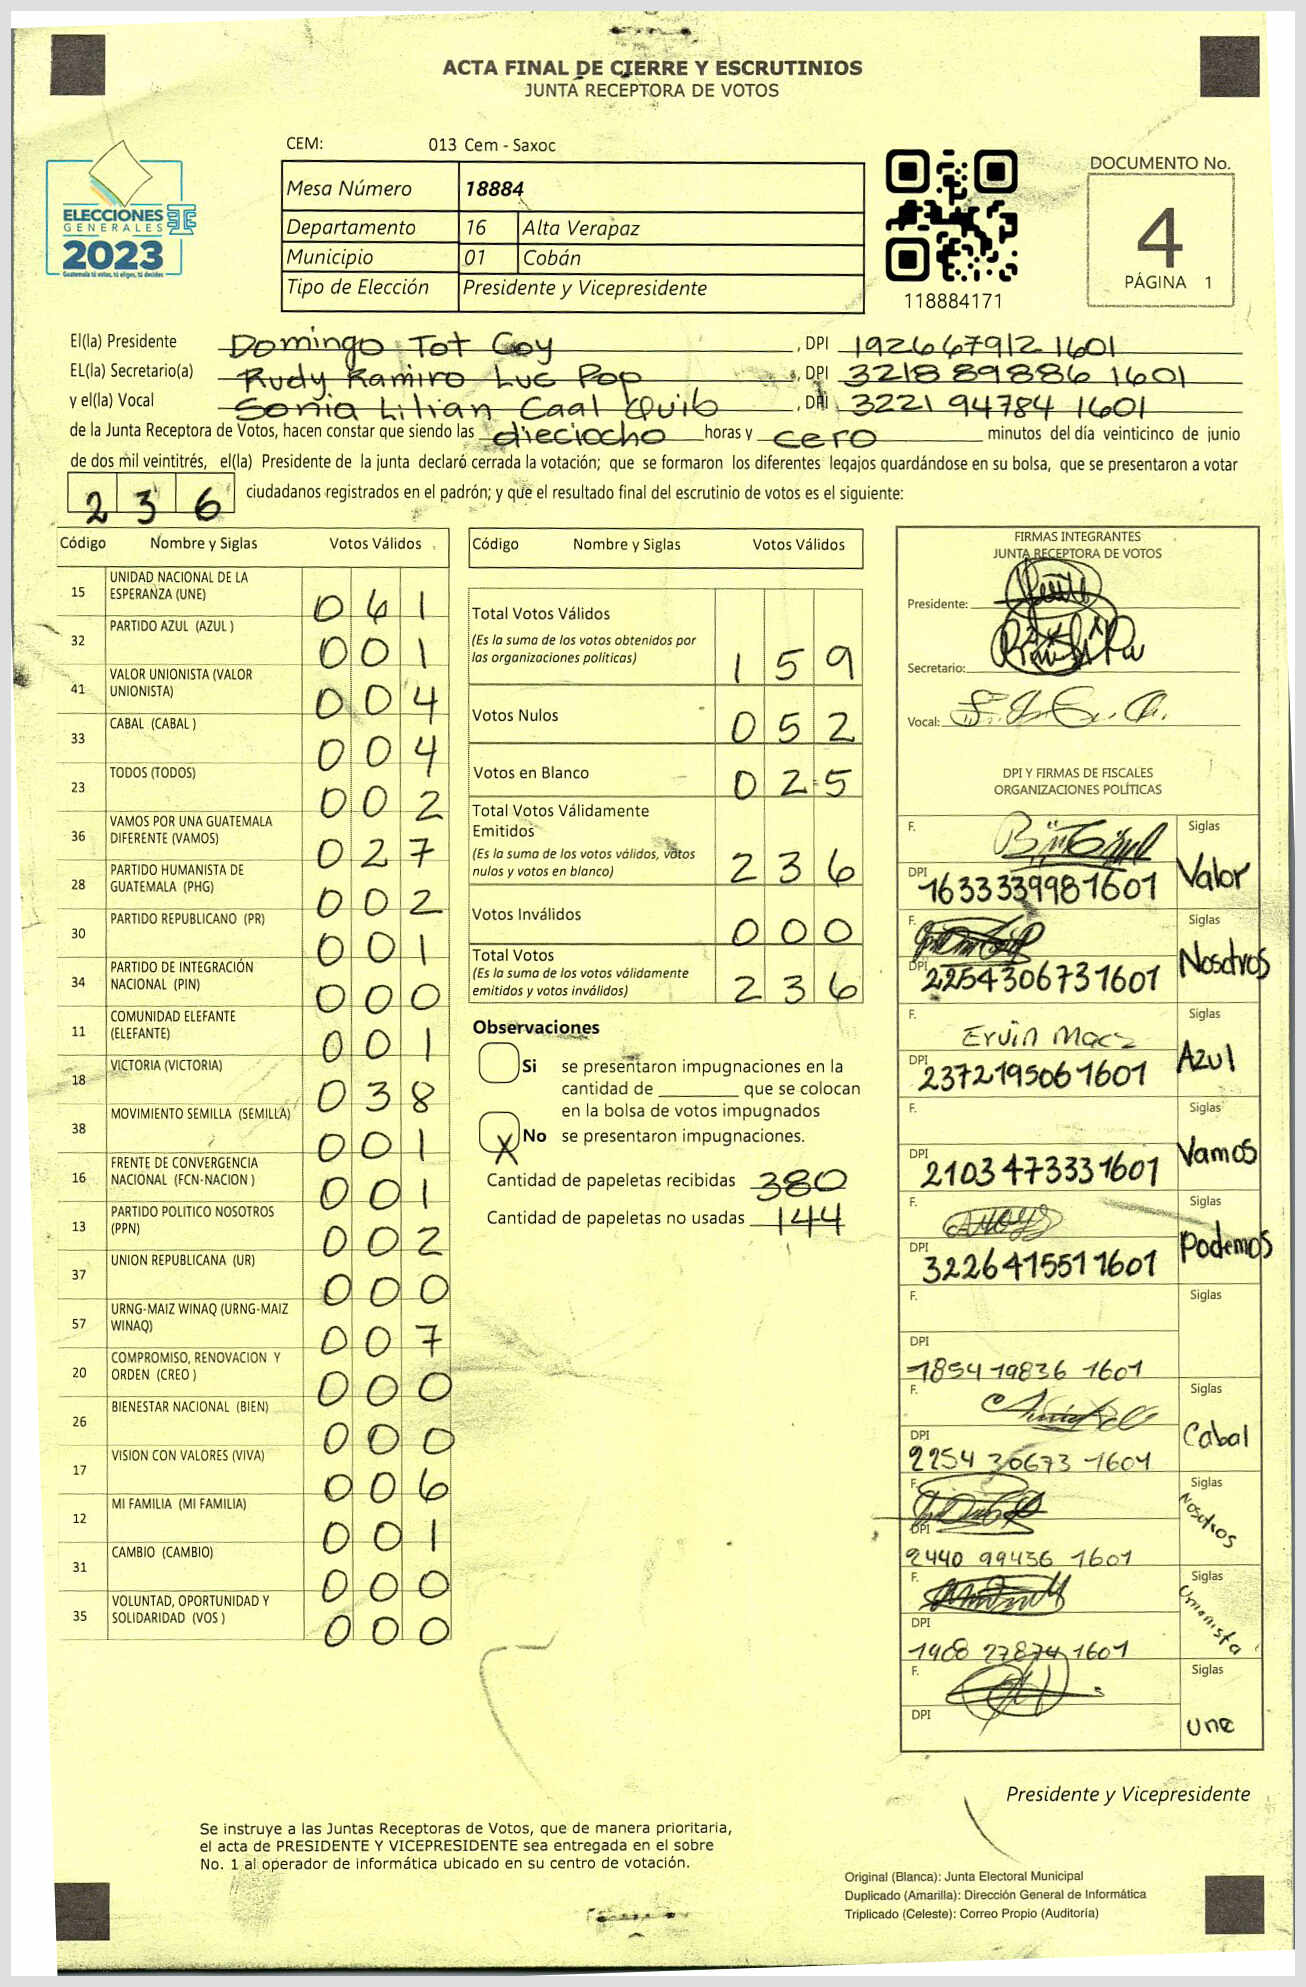 ACTA FINAL DE CIERRE Y ESCRUTINIOS
JUNTA RECEPTORA DE VOTOS
CEM: 013 Cem - Saxoc
Mesa Número 18884
Departamento 16 Alta Verapaz
Municipio 01 Cobán
Tipo de Elección Presidente y Vicepresidente
ELECCIONES
GENERALES
2023
Guatemala tú votas, tú eliges, tú decides
118884171
DOCUMENTO No.
4
PÁGINA 1
El(la) Presidente Domingo Tot Coy , DPI 192667912 1601
EL(la) Secretario(a) Rudy Ramiro Luc Pop , DPI 3218 89886 1601
y el(la) Vocal Sonia Lilian Caal Quib , DPI 3221 94784 1601
de la Junta Receptora de Votos, hacen constar que siendo las dieciocho horas y cero minutos del día veinticinco de junio
de dos mil veintitrés, el(la) Presidente de la junta declaró cerrada la votación; que se formaron los diferentes legajos guardándose en su bolsa, que se presentaron a votar
236 ciudadanos registrados en el padrón; y que el resultado final del escrutinio de votos es el siguiente:
Código Nombre y Siglas Votos Válidos
15 UNIDAD NACIONAL DE LA
ESPERANZA (UNE) 061
32 PARTIDO AZUL (AZUL ) 001
41 VALOR UNIONISTA (VALOR
UNIONISTA) 004
33 CABAL (CABAL ) 004
23 TODOS (TODOS) 002
36 VAMOS POR UNA GUATEMALA
DIFERENTE (VAMOS) 027
28 PARTIDO HUMANISTA DE
GUATEMALA (PHG) 002
30 PARTIDO REPUBLICANO (PR) 001
34 PARTIDO DE INTEGRACIÓN
NACIONAL (PIN) 000
11 COMUNIDAD ELEFANTE
(ELEFANTE) 001
18 VICTORIA (VICTORIA) 038
38 MOVIMIENTO SEMILLA (SEMILLA) 001
16 FRENTE DE CONVERGENCIA
NACIONAL (FCN-NACION ) 001
13 PARTIDO POLITICO NOSOTROS
(PPN) 002
37 UNION REPUBLICANA (UR) 000
57 URNG-MAIZ WINAQ (URNG-MAIZ
WINAQ) 007
20 COMPROMISO, RENOVACION Y
ORDEN (CREO ) 000
26 BIENESTAR NACIONAL (BIEN) 000
17 VISION CON VALORES (VIVA) 006
12 MI FAMILIA (MI FAMILIA) 001
31 CAMBIO (CAMBIO) 000
35 VOLUNTAD, OPORTUNIDAD Y
SOLIDARIDAD (VOS ) 000
Código Nombre y Siglas Votos Válidos
Total Votos Válidos
(Es la suma de los votos obtenidos por
las organizaciones políticas) 159
Votos Nulos 052
Votos en Blanco 025
Total Votos Válidamente
Emitidos
(Es la suma de los votos válidos, votos
nulos y votos en blanco) 236
Votos Inválidos 000
Total Votos
(Es la suma de los votos válidamente
emitidos y votos inválidos) 236
Observaciones
Si se presentaron impugnaciones en la
cantidad de ________ que se colocan
en la bolsa de votos impugnados
X No se presentaron impugnaciones.
Cantidad de papeletas recibidas 380
Cantidad de papeletas no usadas 144
FIRMAS INTEGRANTES
JUNTA RECEPTORA DE VOTOS
Presidente:
Secretario:
Vocal:
DPI Y FIRMAS DE FISCALES
ORGANIZACIONES POLÍTICAS
F. Siglas
DPI 1633339981601 Valor
F. Siglas
DPI 2254306731601 Nosotros
F. Ervin Macz Siglas
DPI 2372195061601 Azul
F. Siglas
DPI 2103473331601 Vamos
F. Siglas
DPI 3226415511601 Podemos
F. Siglas
DPI 1854 19836 1601
F. Siglas
DPI 2254 30673 1601 Cabal
F. Siglas
DPI 2440 99456 1601 Nosotros
F. Siglas
DPI 1908 27874 1601 Unionista
F. Siglas
DPI une
Presidente y Vicepresidente
Se instruye a las Juntas Receptoras de Votos, que de manera prioritaria,
el acta de PRESIDENTE Y VICEPRESIDENTE sea entregada en el sobre
No. 1 al operador de informática ubicado en su centro de votación.
Original (Blanca): Junta Electoral Municipal
Duplicado (Amarilla): Dirección General de Informática
Triplicado (Celeste): Correo Propio (Auditoría)